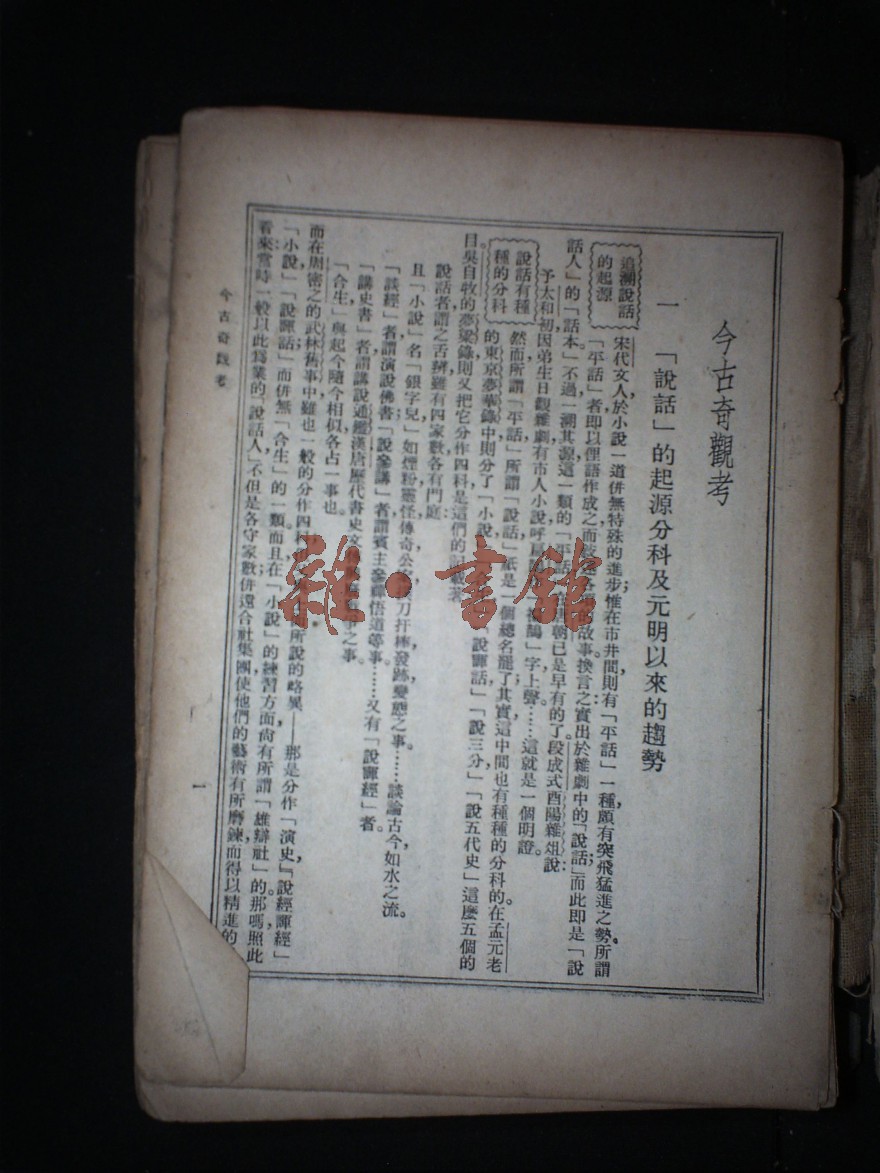 今古奇觀考
一 「說話」的起源分科及元明以來的趨勢
追溯說話
的起源
宋代文人於小說一道併無特殊的進步惟在市井間則有「平話」一種頗有突飛猛進之勢。所謂
「平話」者即以俚語作成之而故事換言之實出於雜劇中的「說話」而此即是「說
話人」的「話本」不過一溯其源這一類的「平話」朝已是早有的了。段成式酉陽雜俎說：
予太和初因弟生日觀雜劇有市人小說呼扁鵲字上聲……這就是一個明證。
說話有種
種的分科
然而所謂「平話」所謂「說話」祇是一個總名罷了其實這中間也有種種的分科的。在孟元老
的東京夢華錄中則分了「小說」「說諢話」「說三分」「說五代史」這麼五個的
目。吳自牧的夢粱錄則又把它分作四科是這們的記載著
說話者謂之舌辨雖有四家數各有門庭：
且「小說」名「銀字兒」如煙粉靈怪傳奇公刀扞棒發跡變態之事。……談論古今如水之流。
「談經」者謂演說佛書「說參請」者謂賓主參禪悟道等事……又有「說諢經」者。
「講史書」者謂講說通鑑漢唐歷代書史文之事。
「合生」與起今隨今相似各占一事也。
而在周密之的武林舊事中雖也一般的分作四科所說的略異——那是分作「演史」「說經諢經」
「小說」「說諢話」而併無「合生」的一類。而且在「小說」的練習方面尙有所謂「雄辯社」的。那嗎照此
看來當時一般以此爲業的「說話人」不但是各守家數併還合社集團使他們的藝術有所磨鍊而得以精進的
今古奇觀考
一
雜·書館